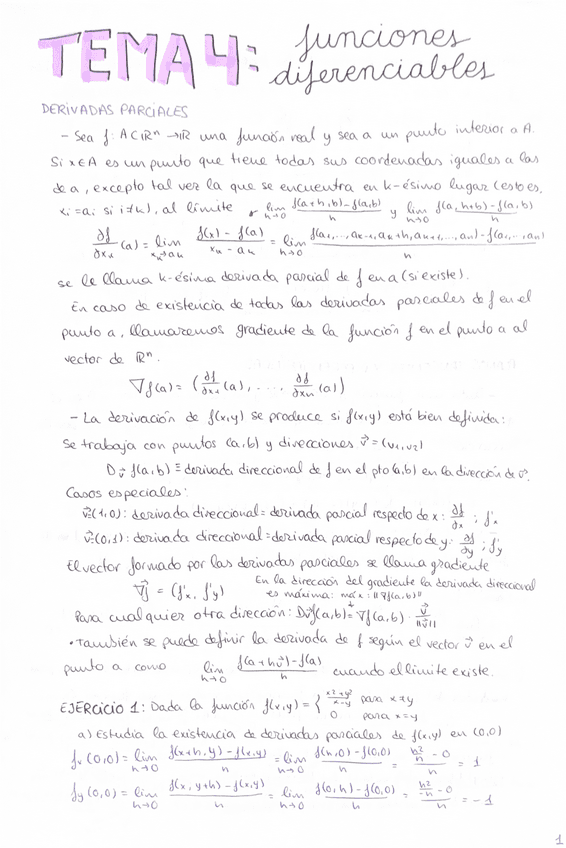 TEMA 4: funciones
diferenciables
DERIVADAS PARCIALES
- Sea f: A⊂ℝⁿ → ℝ una función real y sea a un punto interior a A.
Si x∈A es un punto que tiene todas sus coordenadas iguales a las
de a, excepto tal vez la que se encuentra en k-ésimo lugar (esto es,
xᵢ=aᵢ si i≠k), al límite lim h→0 (f(a+h,b)-f(a,b))/h y lim h→0 (f(a,h+b)-f(a,b))/h
∂f/∂xₖ (a) = lim xₖ→aₖ (f(x)-f(a))/(xₖ-aₖ) = lim h→0 (f(a₁,...,aₖ₋₁,aₖ+h,aₖ₊₁,...,aₙ)-f(a₁,...,aₙ))/h
se le llama k-ésima derivada parcial de f en a (si existe).
En caso de existencia de todas las derivadas parciales de f en el
punto a, llamaremos gradiente de la función f en el punto a al
vector de ℝⁿ.
∇f(a) = (∂f/∂x₁ (a), ..., ∂f/∂xₙ (a))
- La derivación de f(x,y) se produce si f(x,y) está bien definida:
Se trabaja con puntos (a,b) y direcciones v⃗=(v₁,v₂)
D_v⃗ f(a,b) ≡ derivada direccional de f en el pto (a,b) en la dirección de v⃗.
Casos especiales:
v⃗=(1,0): derivada direccional = derivada parcial respecto de x: ∂f/∂x ; f'ₓ
v⃗=(0,1): derivada direccional = derivada parcial respecto de y: ∂f/∂y ; f'y
El vector formado por las derivadas parciales se llama gradiente
∇⃗f = (f'ₓ, f'y) En la dirección del gradiente la derivada direccional
es máxima: máx: ||∇f(a,b)||
Para cualquier otra dirección: Dv⃗f(a,b) = ∇f(a,b) · v⃗/||v⃗||
• También se puede definir la derivada de f según el vector v⃗ en el
punto a como lim h→0 (f(a+hv⃗)-f(a))/h cuando el límite existe.
EJERCICIO 1: Dada la función f(x,y) = { (x²+y²)/(x-y) para x≠y
0 para x=y
a) Estudia la existencia de derivadas parciales de f(x,y) en (0,0)
fₓ(0,0) = lim h→0 (f(x+h,y)-f(x,y))/h = lim h→0 (f(h,0)-f(0,0))/h = (h²/h - 0)/h = 1
fy(0,0) = lim h→0 (f(x,y+h)-f(x,y))/h = lim h→0 (f(0,h)-f(0,0))/h = (h²/-h - 0)/h = -1
1